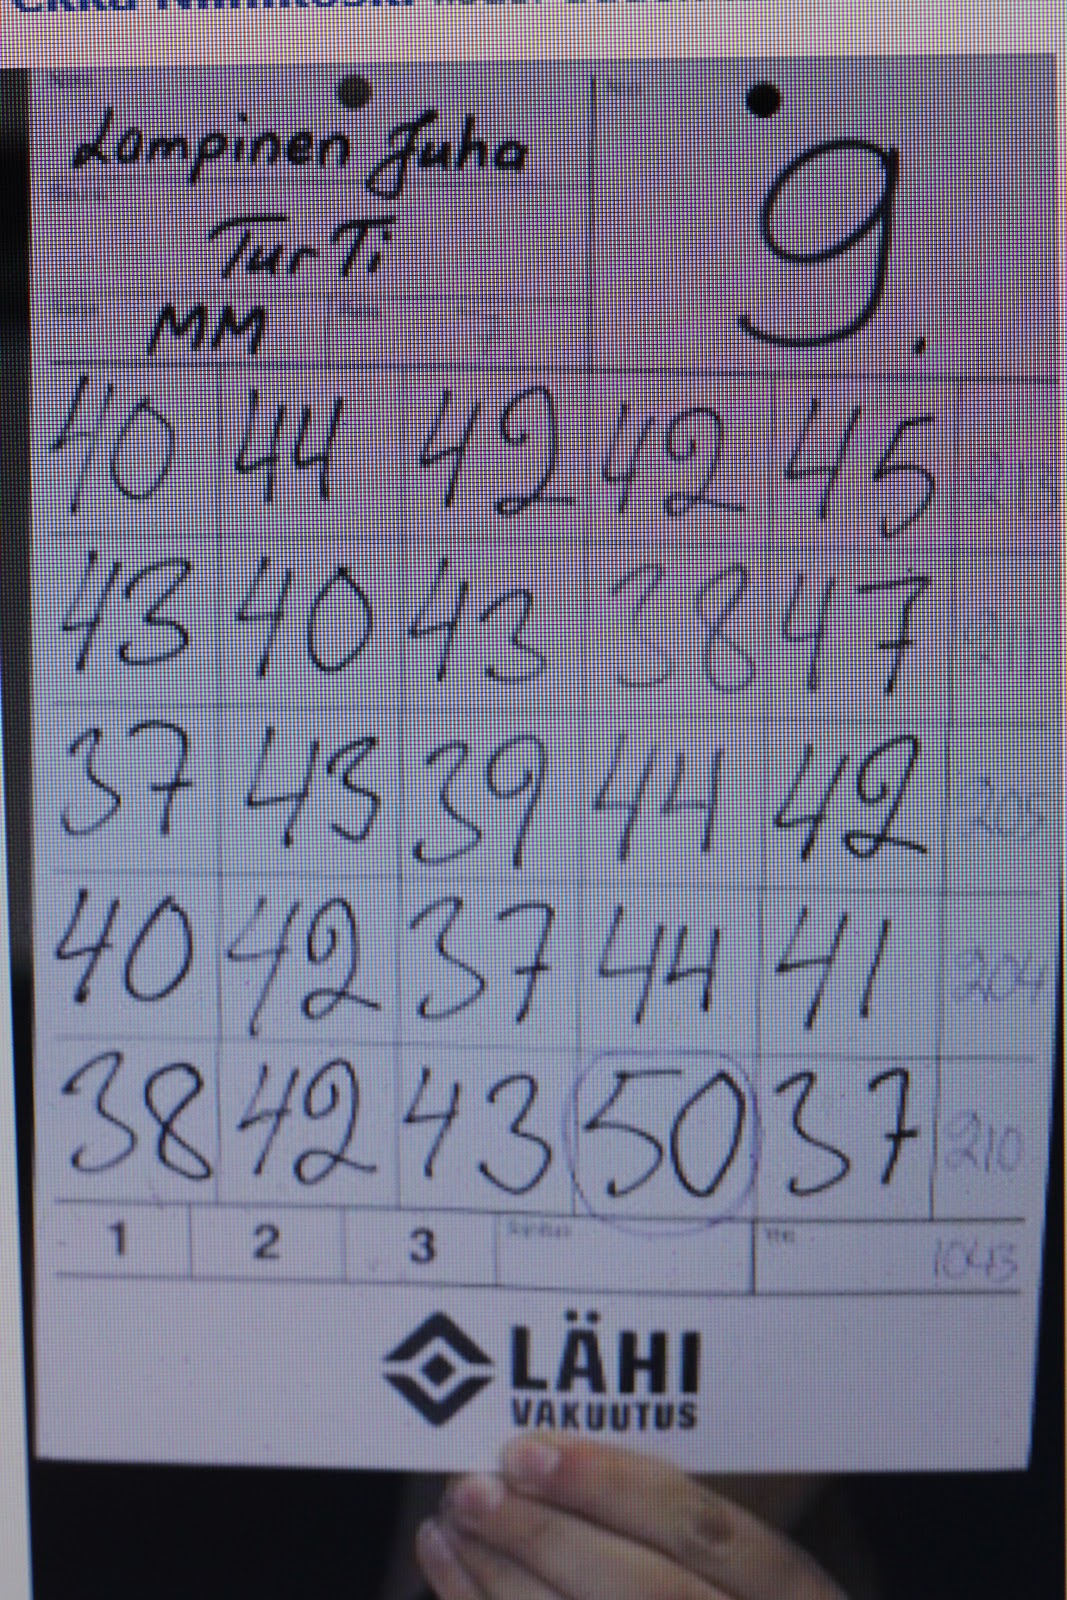 Lampinen Juha
9.
Tur Ti
MM
40 44 42 42 45 213
43 40 43 38 47 211
37 43 39 44 42 205
40 42 37 44 41 204
38 42 43 50 37 210
1 2 3
1043
LÄHI
VAKUUTUS